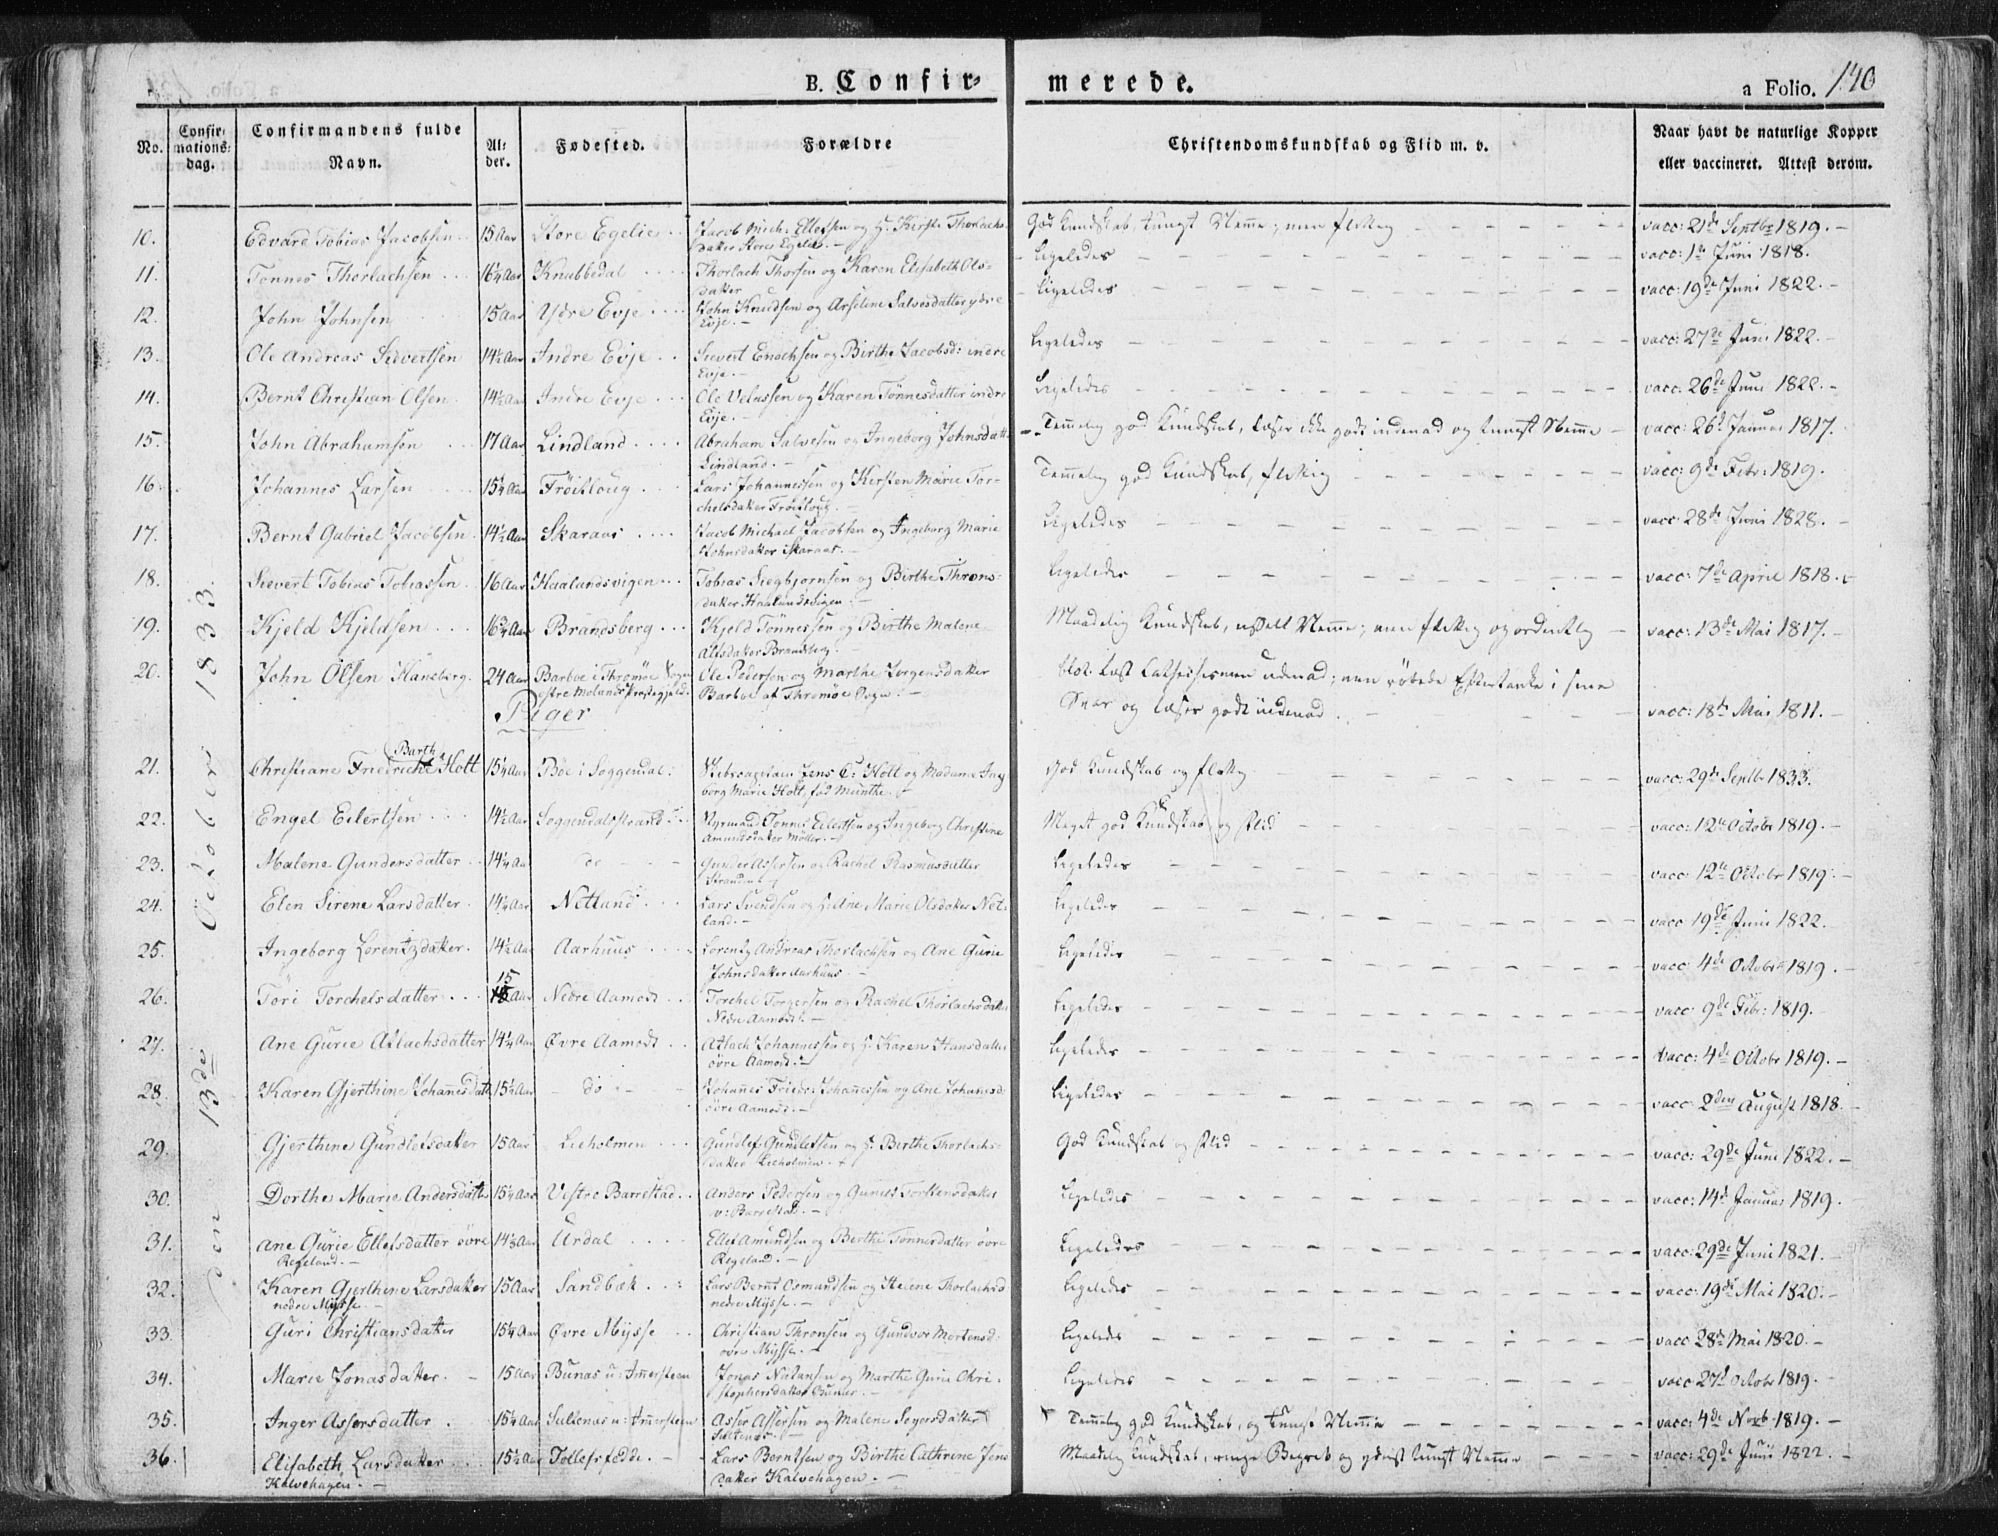 B. Confir-
merede.
a Folio. 140
No.
Confir-
mations-
dag.
Confirmandens fulde
Navn.
Al-
der.
Fødested.
Forældre
Christendomskundskab og Flid m. v.
Naar havt de naturlige Kopper
eller vaccineret. Attest derom.
den 13de October 1833.
10. Edvard Tobias Jacobsen 15 Aar Store Egelie Jacob Mich: Ellefsen og H. Kirste Thorlachs- God Kundskab, tungt Nemme; men flittig vacc: 21de Septbr 1819.
datter Store Egelie.
11. Tønnes Thorlachsen 16¼ Aar Knubbedal Thorlach Thorsen og Karen Elisabeth Ols- Ligeledes vacc: 1te Juni 1818.
datter
12. John Johnsen 15 Aar Ydre Evje John Knudsen og Arselene Salvesdatter ydre Ligeledes vacc: 19de Juni 1822.
Evje.
13. Ole Andreas Sievertsen 14½ Aar Indre Evje Sievert Enochsen og Birthe Jacobsd: indre Ligeledes vacc: 27de Juni 1822.
Evje.
14. Bernt Christian Olsen 14½ Aar Indre Evje Ole Velussen og Karen Tønnesdatter indre Ligeledes vacc: 26de Juni 1822.
Evje.
15. John Abrahamsen 17 Aar Lindland Abraham Salvesen og Ingeborg Johnsdatt: Temmelig god Kundskab, læser ikke godt indenad og tungt Nemme vacc: 26de Januar 1817.
Lindland.
16. Johannes Larsen 15¼ Aar Frøitloug Lars Johannessen og Kirsten Marie Tor- Temmelig god Kundskab, flittig vacc: 9de Febr: 1819.
chelsdatter Frøitloug.
17. Bernt Gabriel Jacobsen 14½ Aar Skaraas Jacob Michael Jacobsen og Ingeborg Marie Ligeledes vacc: 28de Juni 1828.
Johnsdatter Skaraas.
18. Sievert Tobias Tobiassen 16 Aar Haalandsvigen Tobias Siegbjørnsen og Birthe Throns- Ligeledes vacc: 7de April 1818.
datter Haalandsvigen.
19. Kjeld Kjeldsen 16¾ Aar Brandsberg Kjeld Tønnessen og Birthe Malene Maadelig Kundskab, usselt Nemme; men flittig og ordentlig vacc: 13de Mai 1817.
Alfsdatter Brandsberg.
20. John Olsen Haneborg. 24 Aar Barboe i Thromøe Sogn Ole Pedersen og Marthe Jørgensdatter blot læst Cathechismen udenad; men røbede Eftertanke i sine
østre Molands Præstegjeld. Barboe af Thromøe Sogn. Svar og læser godt indenad. vacc: 18de Mai 1811.
Piger
Barth
21. Christiane Friedricke Holt 15¼ Aar Bøe i Soggendal: Skibscapitain Jens C: Holt og Madame Inge- God Kundskab og flittig vacc: 29de Septbr 1833.
borg Marie Holt, fød Munthe.
22. Engel Eilertsen 14½ Aar Soggendalsstrand Styrmand Tønnes Eilertsen og Ingeborg Christine Meget god Kundskab og Flid vacc: 12te Octobr 1819.
Amundsdatter Møller.
23. Malene Gundersdatter 14¼ Aar do Gunder Assersen og Rachel Rasmusdatter Ligeledes vacc: 12te Octobr 1819.
Stranden.
24. Elen Sirene Larsdatter 14¼ Aar Netland Lars Svendsen og H. Ane Marie Olsdatter Net- Ligeledes vacc 19de Juni 1822.
land.
25. Ingeborg Lorentzdatter. 14½ Aar Aarhuus Lorentz Andreas Thorlachsen og Ane Gurie Ligeledes vacc: 4de Octobr 1819.
Johnsdatter Aarhuus
26. Tøri Torchelsdatter 15 Aar Nedre Aamodt Torchel Torgersen og Rachel Thorlachsdatter Ligeledes vacc: 9de Febr: 1819.
Nedre Aamodt.
27. Ane Gurie Atlachsdatter 14¼ Aar Øvre Aamodt Atlach Johannessen og H. Karen Hansdatter Ligeledes vacc: 4de Octobr 1819.
øvre Aamodt.
28. Karen Gjerthine Johannesdatt 15¼ Aar do Johannes Friedr: Johannessen og Ane Johansd: Ligeledes vacc: 2den August 1818.
øvre Aamodt.
29. Gjerthine Gundlefsdatter 15 Aar Lieholmen Gundlef Gundlefsen og H. Birthe Thorlachs- God Kundskab og Flid vacc: 29de Juni 1822.
datter Lieholmen.
30. Dorthe Marie Andersdatter 15¼ Aar Vestre Barrestad Anders Pedersen og Gunild Torkensdatter Ligeledes vacc: 14de Januar 1819.
v: Barrestad.
31. Ane Gurie Ellefsdatter øvre 14⅓ Aar Urdal Ellef Amundsen og Berthe Tønnesdatter øvre Ligeledes vacc: 29de Juni 1821.
Regeland. Regeland.
32. Karen Gjerthine Larsdatter 15 Aar Sandbæk Lars Bernt Osmundsen og Helene Thorlachsd Ligeledes vacc: 19de Mai 1820.
nedre Mysse nedre Mysse.
33. Guri Christiansdatter 15¼ Aar Øvre Mysse Christian Thronsen og Gundvor Mortensd: Ligeleds vacc 28de Mai 1820.
øvre Mysse.
34. Marie Jonasdatter. 15 Aar Bunæs u: Immersteen Jonas Natansen og Marthe Gurie Chri- Ligeledes vacc 27de Octobr 1819.
stophersdatter Bunæs.
35. Inger Assersdatter 15¼ Aar Saltenæs u: Immersteen Asser Assersen og Malene Segersdatter Temmelig god Kundskab, og tungt Nemme vacc: 4de Novb 1819.
Saltenæs.
36. Elisabeth Larsdatter 15½ Aar Tollefsfædde. Lars Berntsen og Birthe Cathrine Jens- Maadelig Kundskab, ringe Begreb og yderst tungt Nemme vacc: 29de Juni 1822.
Kalvehagen. datter Kalvehagen.